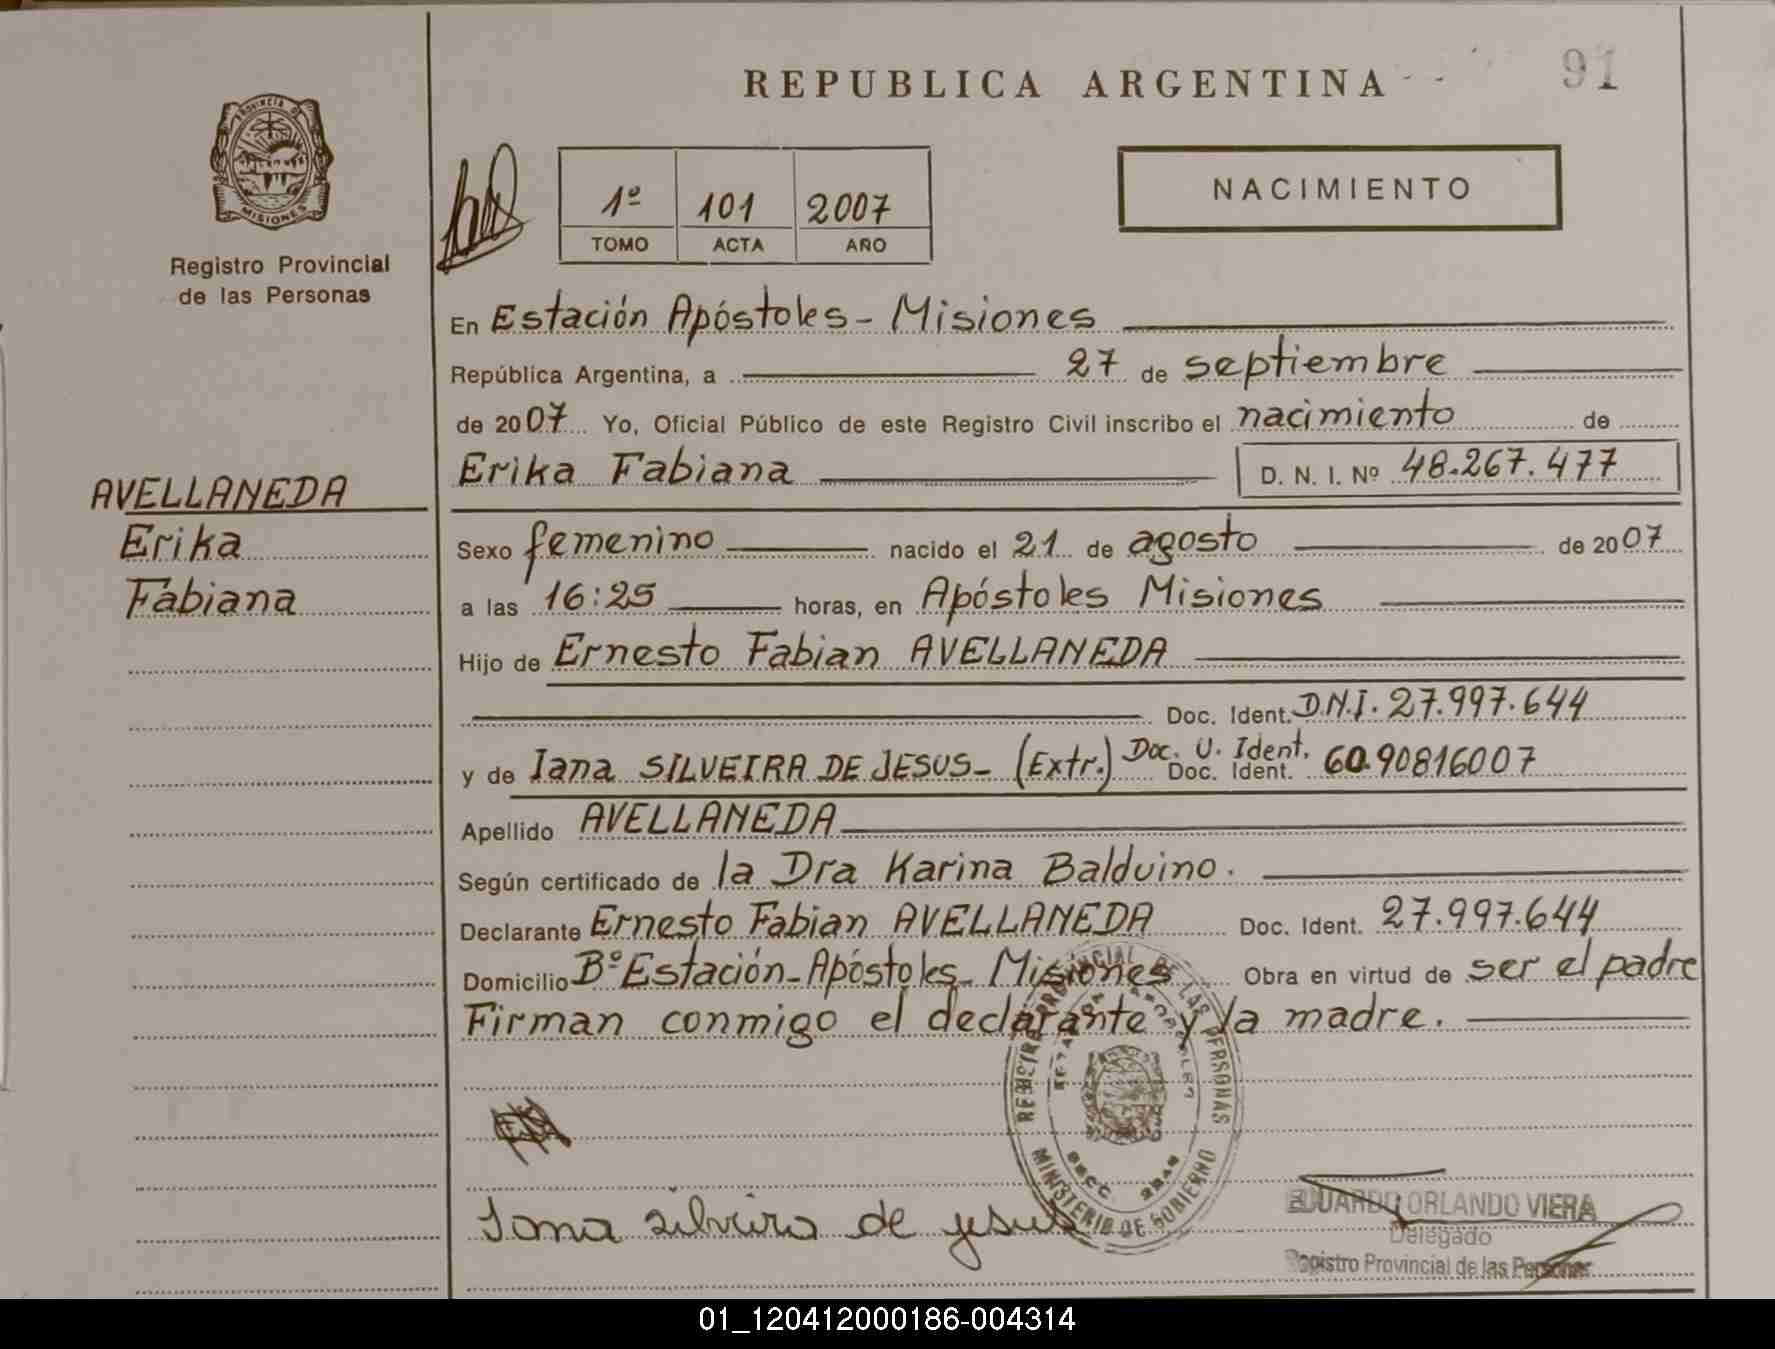 REPUBLICA ARGENTINA
91
PROVINCIA DE
MISIONES
Registro Provincial
de las Personas
1º 101 2007
TOMO ACTA AÑO
NACIMIENTO
En Estación Apóstoles - Misiones
República Argentina, a 27 de septiembre
de 2007 Yo, Oficial Público de este Registro Civil inscribo el nacimiento de
Erika Fabiana D. N. I. Nº 48.267.477
AVELLANEDA
Erika
Fabiana
Sexo femenino nacido el 21 de agosto de 2007
a las 16:25 horas, en Apóstoles Misiones
Hijo de Ernesto Fabian AVELLANEDA
Doc. Ident. D.N.I. 27.997.644
y de Iana SILVEIRA DE JESUS - (Extr.) Doc. U. Ident. Doc. Ident. 6090816007
Apellido AVELLANEDA
Según certificado de la Dra Karina Balduino.
Declarante Ernesto Fabian AVELLANEDA Doc. Ident. 27.997.644
Domicilio Bº Estación - Apóstoles - Misiones Obra en virtud de ser el padre
Firman conmigo el declarante y la madre.
REGISTRO PROVINCIAL DE LAS PERSONAS
MINISTERIO DE GOBIERNO
Iana silveira de jesus
EDUARDO ORLANDO VIERA
Delegado
Registro Provincial de las Personas
01_120412000186-004314